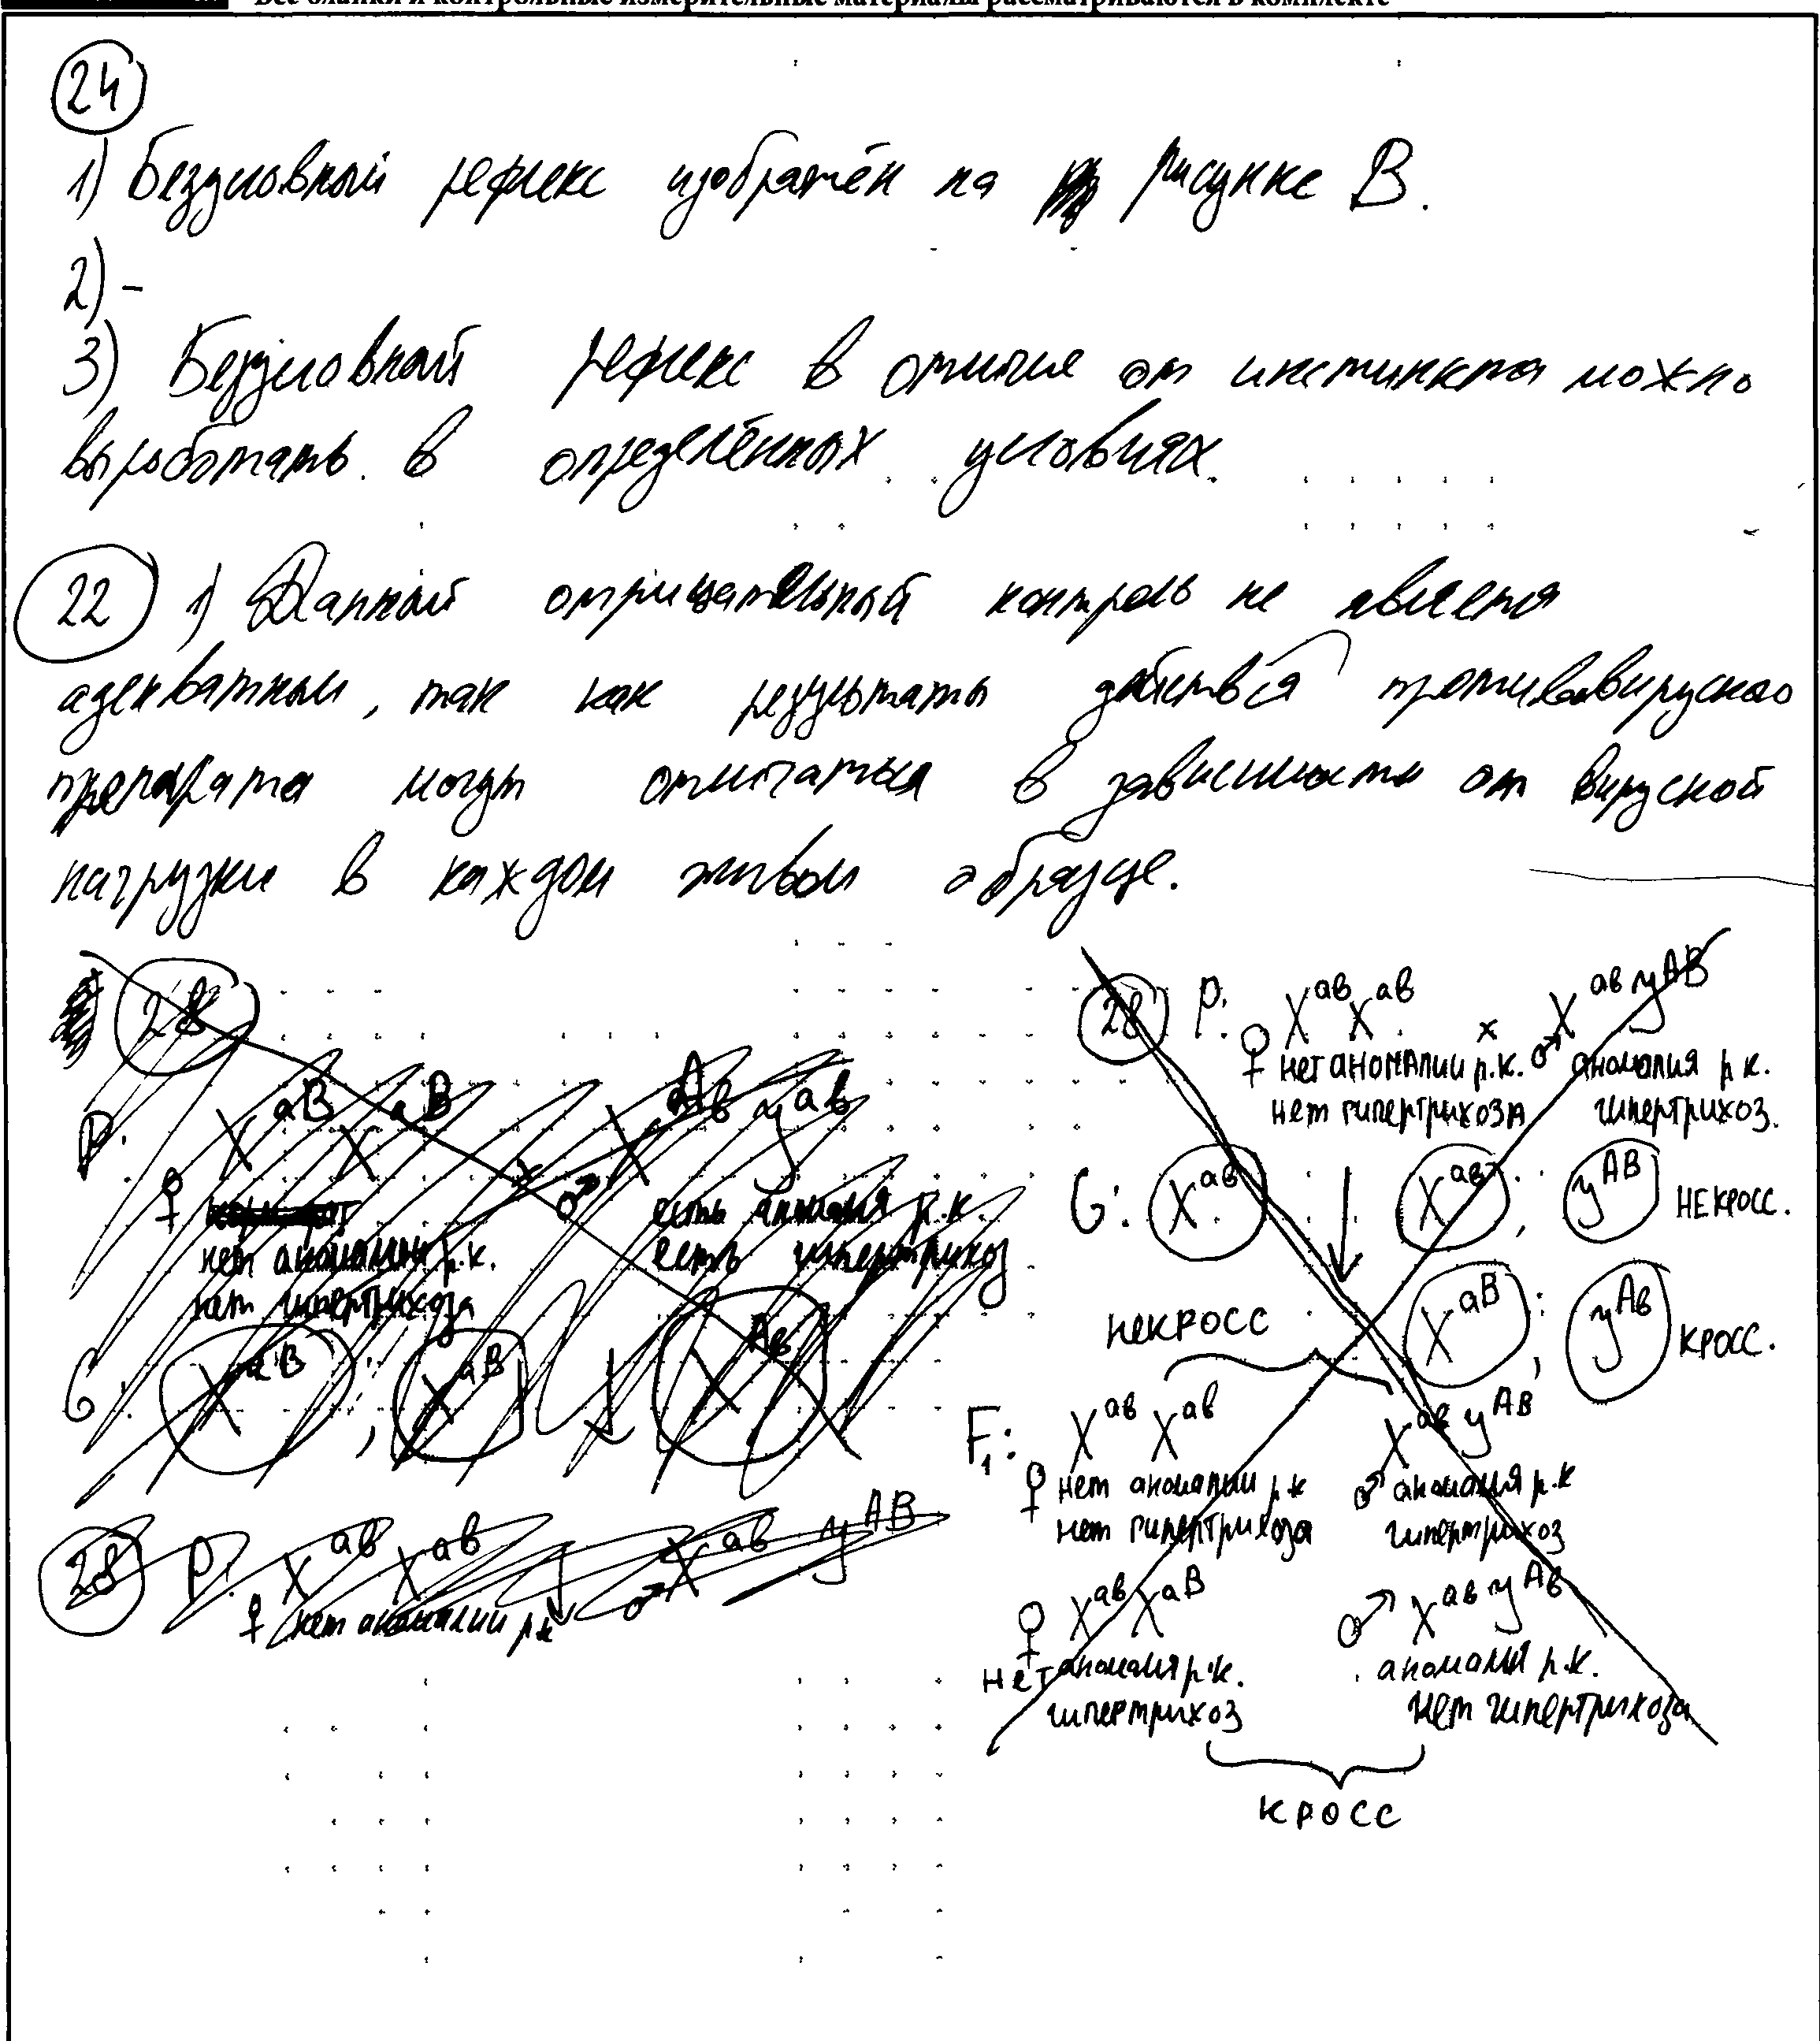 Все бланки и контрольные измерительные материалы рассматриваются в комплекте
24
1) Безусловный рефлекс изображён на рисунке В.
2) -
3) Безусловный рефлекс в отличие от инстинкта можно
выработать в определённых условиях.
22 1) Данный отрицательный контроль не является
адекватным, так как результаты действия противовирусного
препарата могут отличаться в зависимости от вирусной
нагрузки в каждом живом образце.
28
P: ♀ X^aB X^aB x ♂ X^Ab y^ab
нет аномалии р.к. есть аномалия р.к.
нет гипертрихоза есть гипертрихоз
G: X^aB ; X^aB ↓ X^Ab
28 P: ♀ X^ab X^ab ↓ ♂ X^ab y^AB
нет аномалии р.к
28 P: ♀ X^ab X^ab x ♂ X^ab y^AB
нет аномалии р.к. аномалия р.к.
нет гипертрихоза гипертрихоз.
G: X^ab ↓ X^ab ; y^AB некросс.
X^aB ; y^Ab кросс.
некросс
F1: ♀ X^ab X^ab ♂ X^ab y^AB
нет аномалии р.к аномалия р.к
нет гипертрихоза гипертрихоз
♀ X^ab X^aB ♂ X^ab y^Ab
нет аномалия р.к. аномалия р.к.
гипертрихоз нет гипертрихоза
кросс